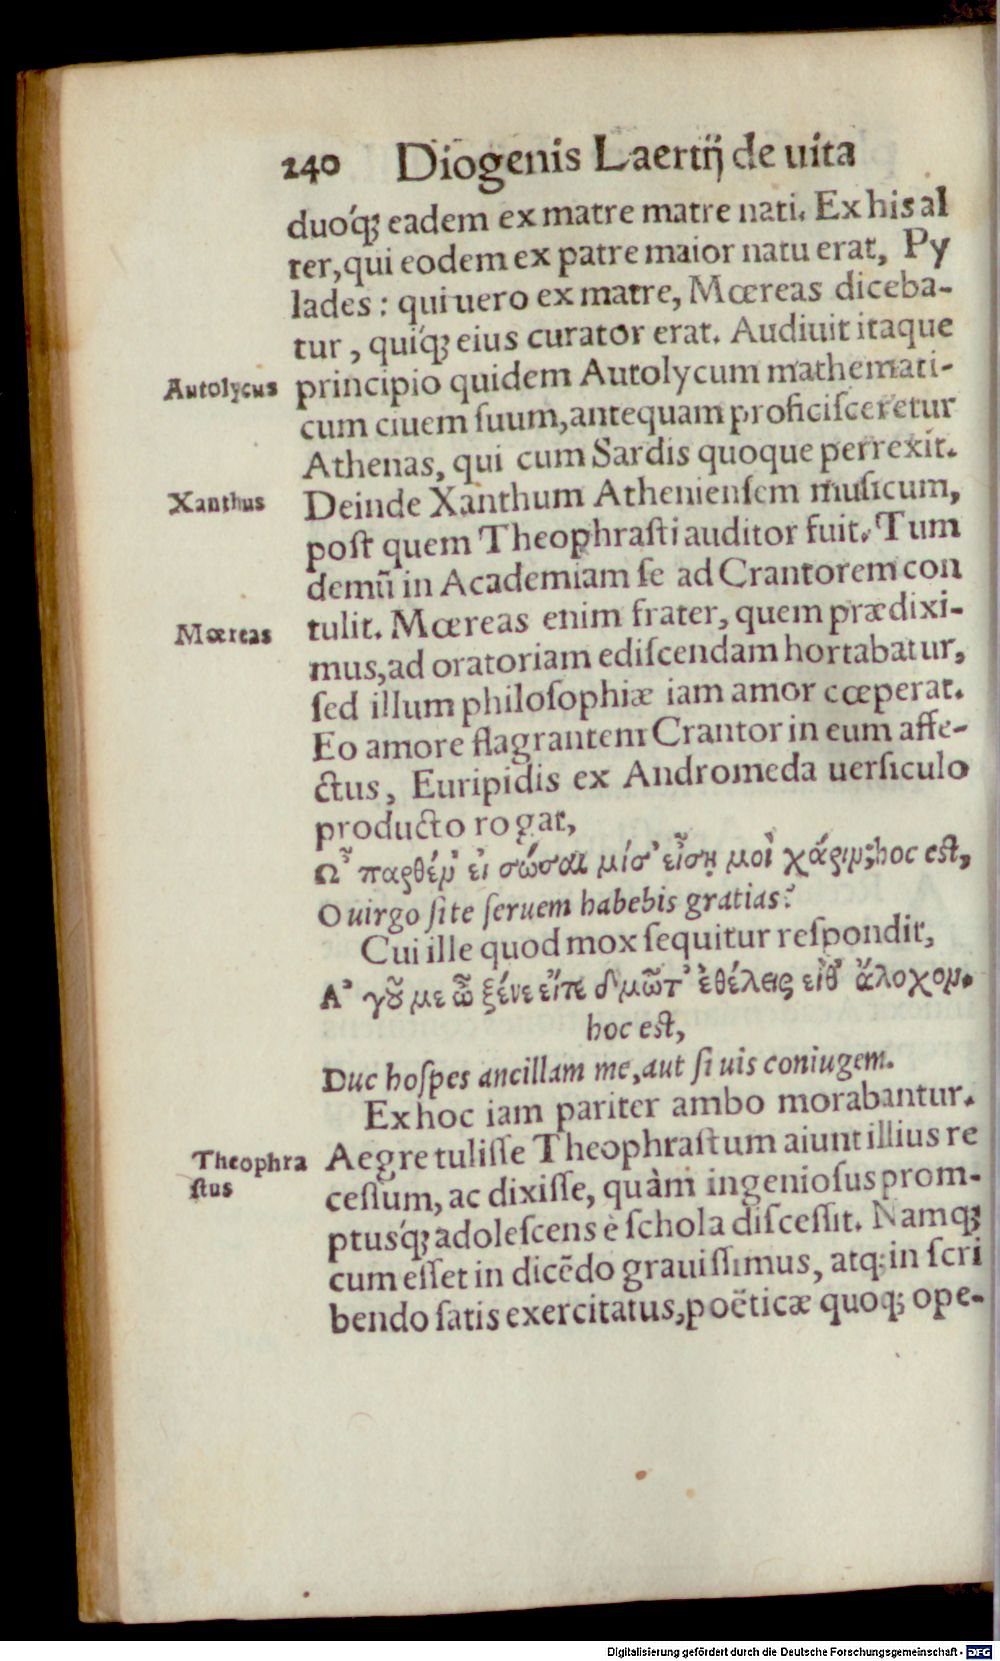 240 Diogenis Laertĳ de uita
duoq́ꝫ eadem ex matre matre nati. Ex his al
ter, qui eodem ex patre maior natu erat, Py
lades : qui uero ex matre, Mœreas diceba-
tur, quiq́ꝫ eius curator erat. Audiuit itaque
Autolycus principio quidem Autolycum mathemati-
cum ciuem ſuum, antequam proficiſceretur
Athenas, qui cum Sardis quoque perrexit.
Xanthus Deinde Xanthum Athenienſem muſicum,
poſt quem Theophraſti auditor fuit. Tum
demū in Academiam ſe ad Crantorem con
Mœreas tulit. Mœreas enim frater, quem prædixi-
mus, ad oratoriam ediſcendam hortabatur,
ſed illum philoſophiæ iam amor cœperat.
Eo amore flagrantem Crantor in eum affe-
ctus, Euripidis ex Andromeda uerſiculo
producto rogat,
Ω῏ παρθέν' εἰ σώσαι μίσ' εἶσῃ μοὶ χάριν; hoc eſt,
O uirgo ſi te ſeruem habebis gratias?
Cui ille quod mox ſequitur reſpondit,
Α᾽ γοῦ με ὦ ξένε εἴπε δμῶτ' ἐθέλεις εἰθ' ἄλοχον.
hoc eſt,
Duc hoſpes ancillam me, aut ſi uis coniugem.
Ex hoc iam pariter ambo morabantur.
Theophra Aegre tuliſſe Theophraſtum aiunt illius re
ſtus ceſſum, ac dixiſſe, quàm ingenioſus prom-
ptusq́ꝫ adoleſcens è ſchola diſceſſit. Namqꝫ
cum eſſet in dicẽdo grauiſſimus, atqꝫ in ſcri
bendo ſatis exercitatus, poëticæ quoqꝫ ope-
Digitalisierung gefördert durch die Deutsche Forschungsgemeinschaft - DFG